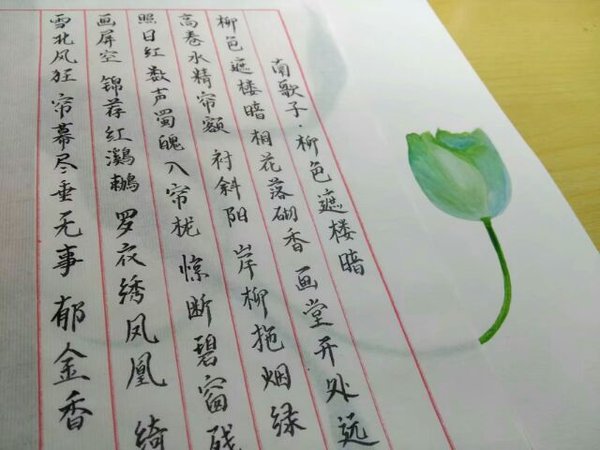 南歌子·柳色遮楼暗
柳色遮楼暗 桐花落砌香 画堂开处远
高卷水精帘额 衬斜阳 岸柳拖烟绿
照日红 数声蜀魄入帘栊 惊断碧窗残
画屏空 锦荐红鸂鶒 罗衣绣凤凰 绮
雪北风狂 帘幕尽垂无事 郁金香